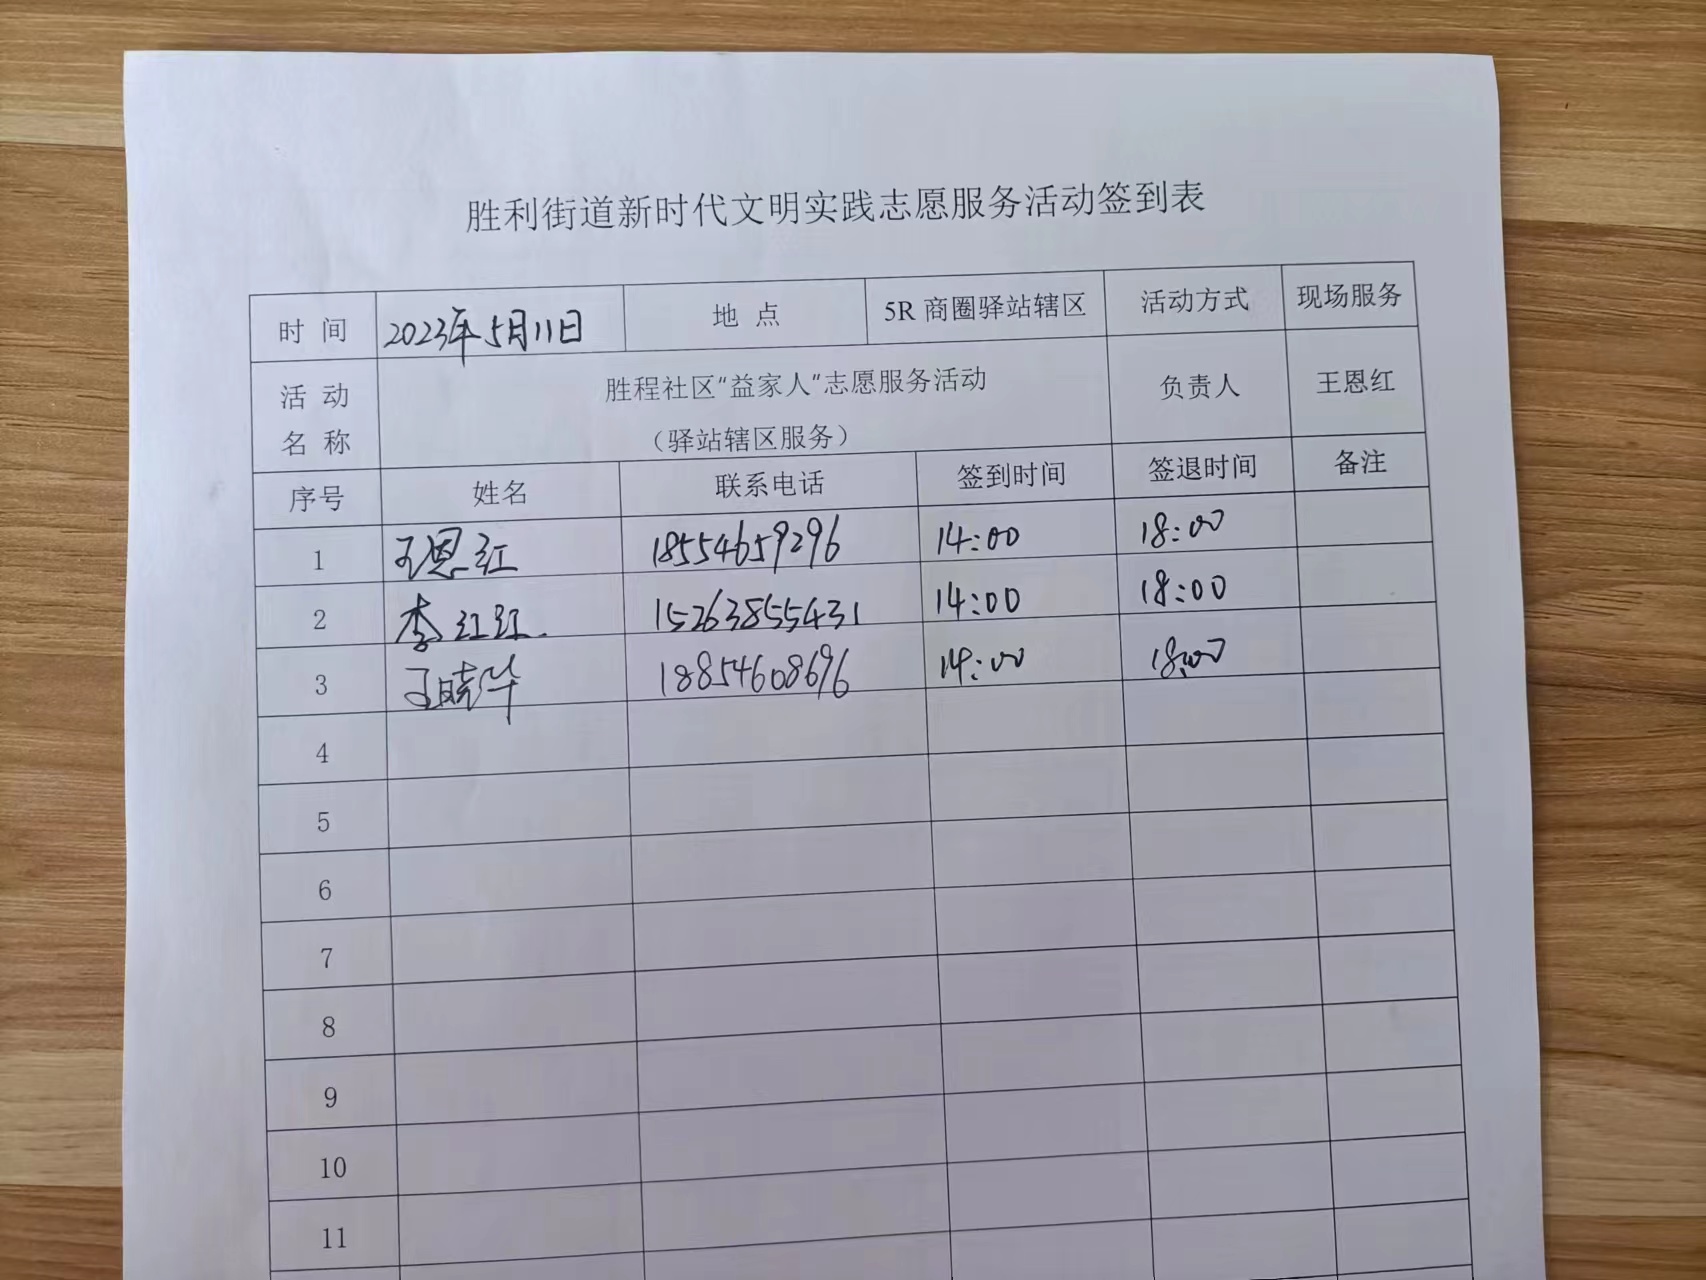 胜利街道新时代文明实践志愿服务活动签到表
时 间 2023年5月11日 地 点 5R 商圈驿站辖区 活动方式 现场服务
活 动 名 称 胜程社区“益家人”志愿服务活动 负责人 王恩红
（驿站辖区服务）
序号 姓名 联系电话 签到时间 签退时间 备注
1 王恩红 18554659296 14:00 18:00
2 李红红 15263855431 14:00 18:00
3 王晓华 18854608696 14:00 18:00
4
5
6
7
8
9
10
11